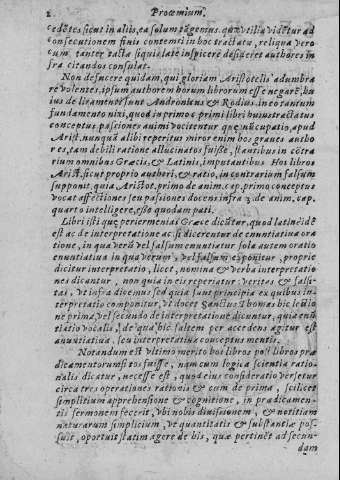 2. Prooemium.
cedẽtes sicut in aliis, ea solum tãgens, quæ vtilia vidẽtur ad
consecutionem finis contenti in hoc tractatu, reliqua vero
cum tanget si quis late inspicere desideret authores in
fra citandos consulat.
Non defuere quidam, qui gloriam Aristotelis adumbra
re volentes, ipsum authorem horum librorum esse negarẽt, hu
ius deliramenti sunt Andronicus & Rodius, in eo tantum
fundamento nixi, quod in primo c. primi libri huius tractatus
conceptus pasiones animi vocitentur quæ nũcupatio, apud
Arist. nunquã alibi reperitur miror enim hos graues autho
res, tam debili ratione allucinatos fuisse, stantibus in cõtra
rium omnibus Græcis, & Latinis, imputantibus Hos libros
Arist. sicut proprio authori, & ratio, in contrarium falsum
supponit, quia Aristot. primo de anim. cap. primo conceptus
vocat affectiones seu pasiones docens infra 3. de anim. cap.
quarto intelligere, esse quodam pati.
Libri isti quæ periermenias Græce dicũtur, quod latine idẽ
est ac de interpretatione ac si dicerentur de enuntiatiua ora
tione, in qua verũ vel falsum enuntiatur sola autem oratio
enuntiatiua in qua verum, vel falsum exponitur, proprie
dicitur interpretatio, licet, nomina & verba interpretatio
nes dicantur, non quia in eis reperiatur, veritas & falsi-
tas, vt infra dicemus sed quia sunt principia ex quibus in-
terpretatio componitur, vt docet Sanctus Thomas hic lectio
ne prima, vel secundo de interpretatione dicuntur, quia enũ
tiatio vocalis, de qua hic saltem per accidens agitur est
anuntiatiua, seu interpretatiua conceptus mentis.
Notandum est vltimo merito hos libros post libros præ
dicamentorum sitos fuisse, nam cum logica scientia ratio-
nalis dicatur, necesse est, quod eius consideratio versetur
circa tres operationes rationis & cum de prima, scilicet
simplitium apprehensione & cognitione, in prædicamen-
tis sermonem fecerit, vbi nobis diuisionem, & notitiam
naturarum simplicium, vt quantitatis & substantiæ pos-
suit, oportuit statim agere de his, quæ pertinẽt ad secun-
dam